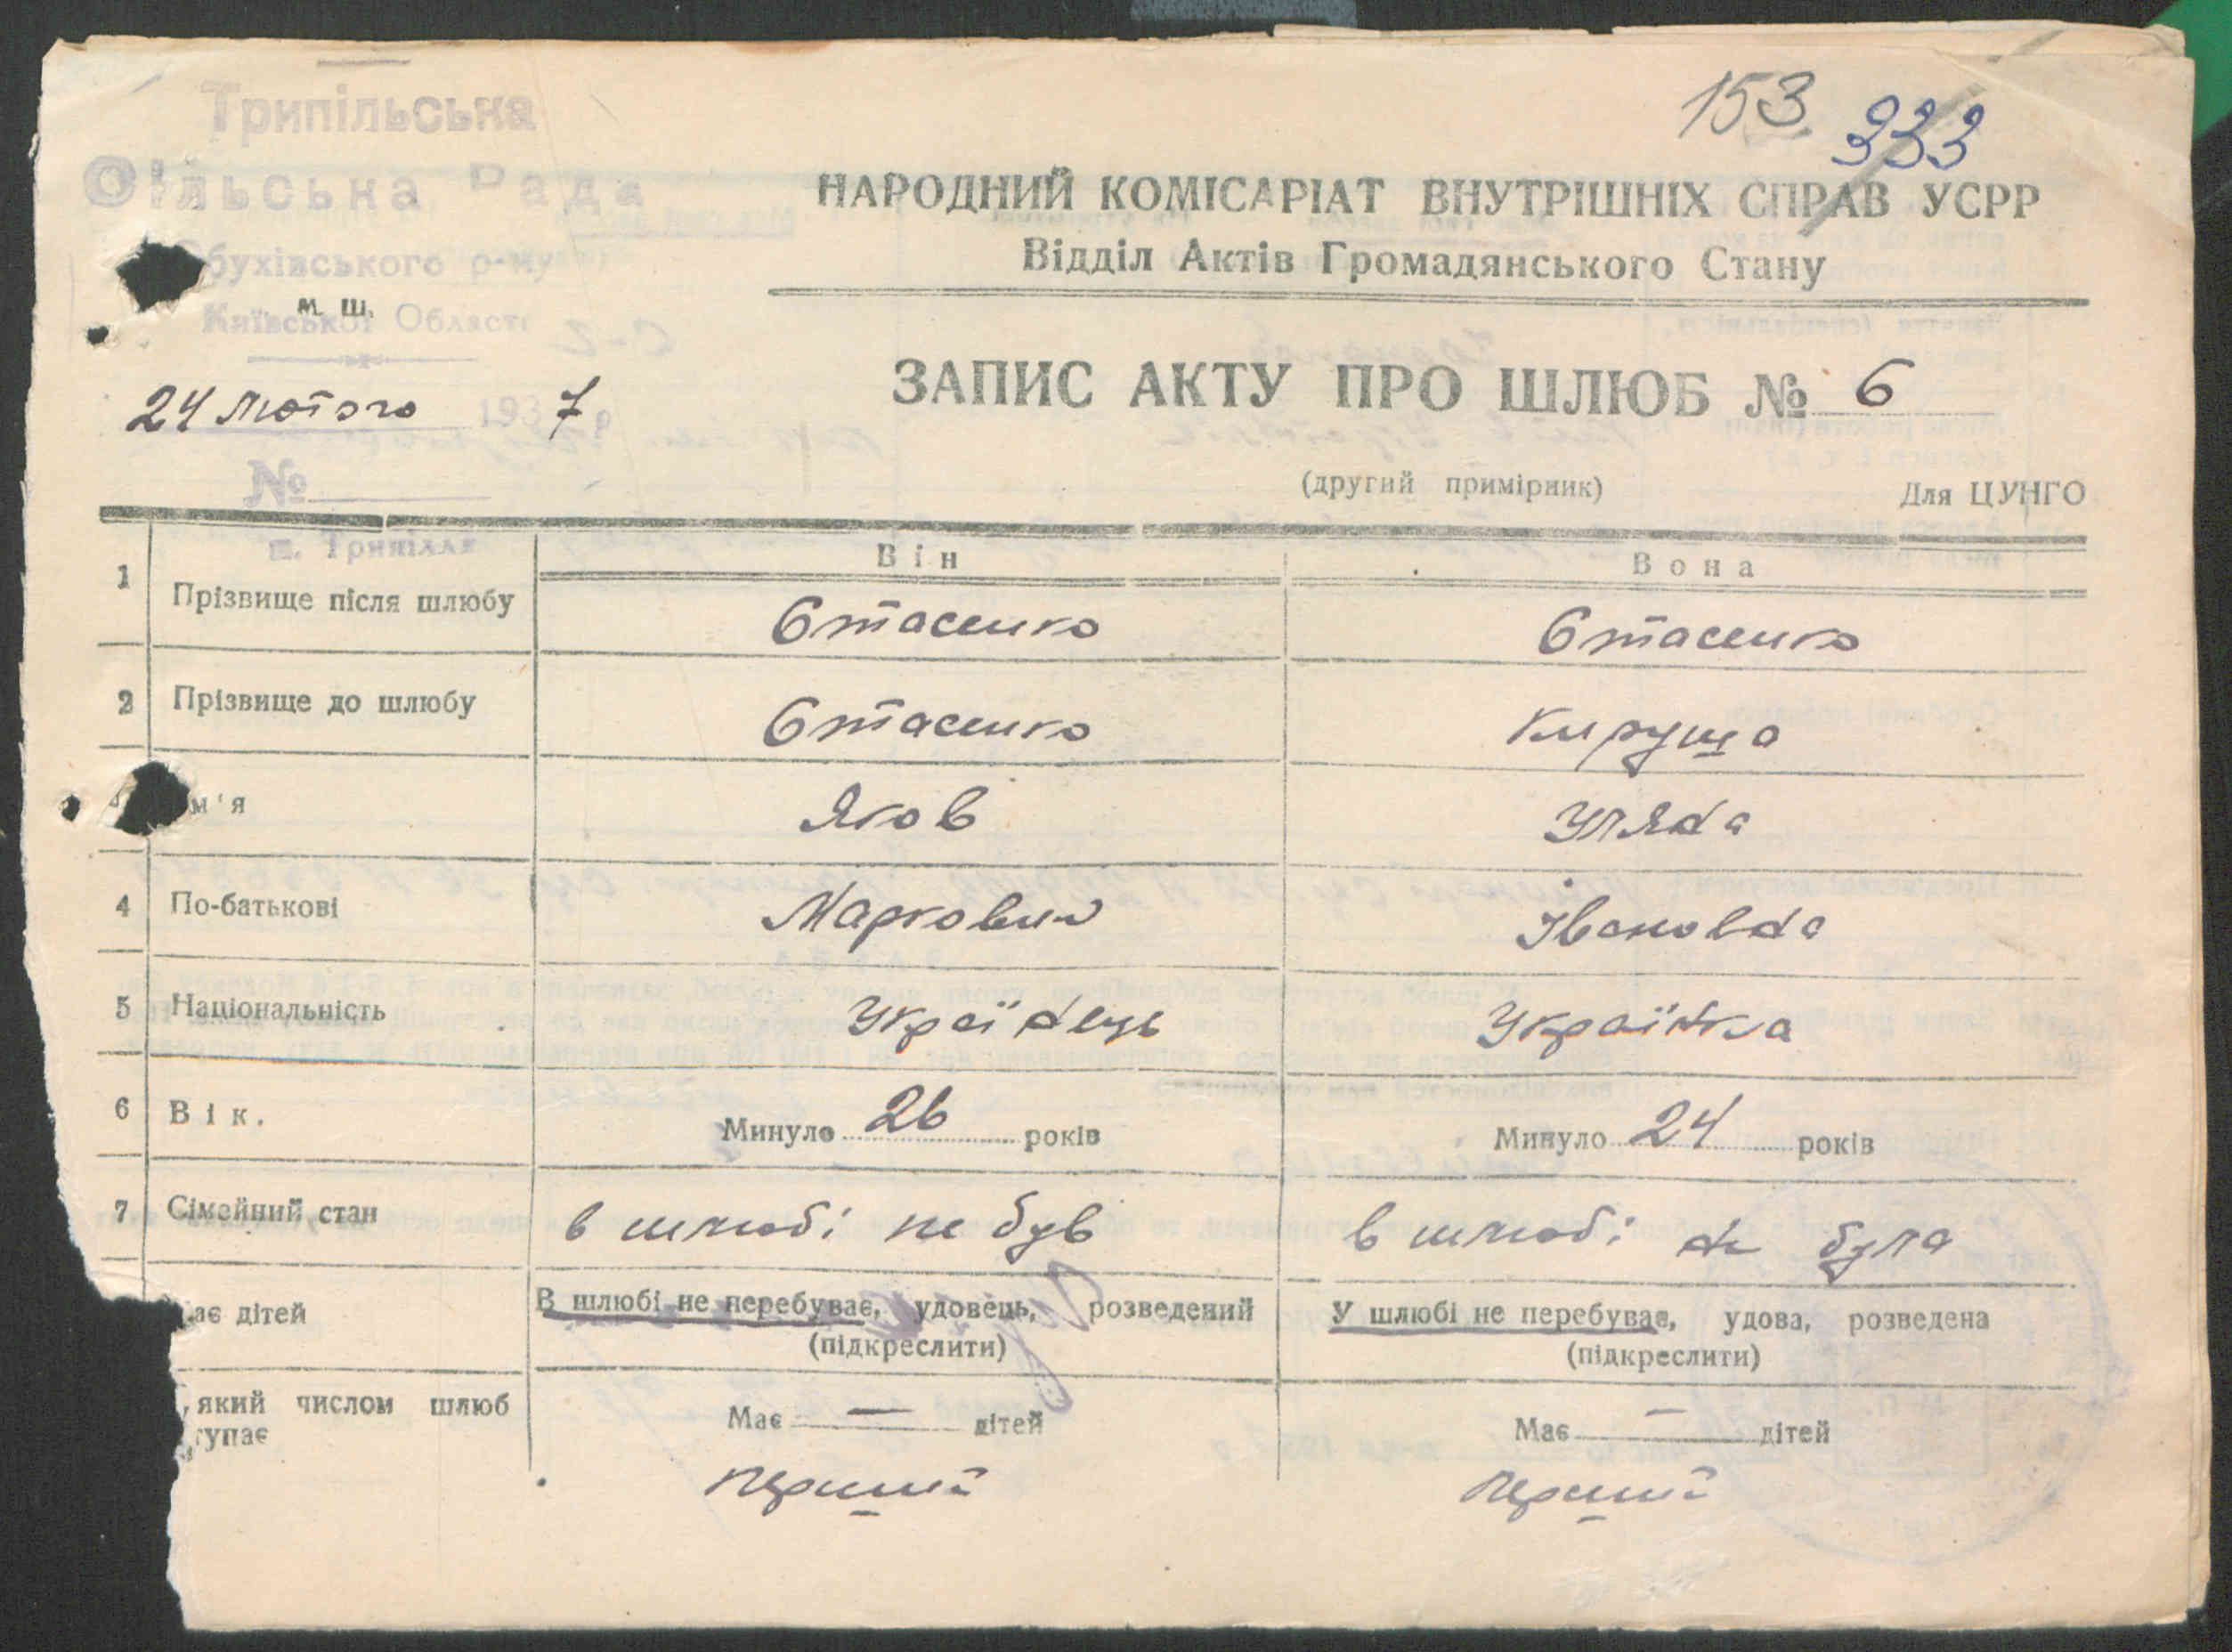 Трипільська
Сільська Рада
Обухівського р-ну
м. ш.
Київської Області
24 лютого 1937 р
№
с. Трипілля
153 333
НАРОДНИЙ КОМІСАРІАТ ВНУТРІШНІХ СПРАВ УСРР
Відділ Актів Громадянського Стану
ЗАПИС АКТУ ПРО ШЛЮБ № 6
(другий примірник) Для ЦУНГО
Він Вона
1 Прізвище після шлюбу Стасенко Стасенко
2 Прізвище до шлюбу Стасенко Кируша
м'я Яков Уляна
4 По-батькові Маркович Івановна
5 Національність Українець Українка
6 Вік. Минуло 26 років Минуло 24 років
7 Сімейний стан в шлюбі не був в шлюбі не була
ає дітей В шлюбі не перебуває, удовець, розведений У шлюбі не перебуває, удова, розведена
(підкреслити) (підкреслити)
який числом шлюб Має — дітей Має — дітей
тупає
перший перший